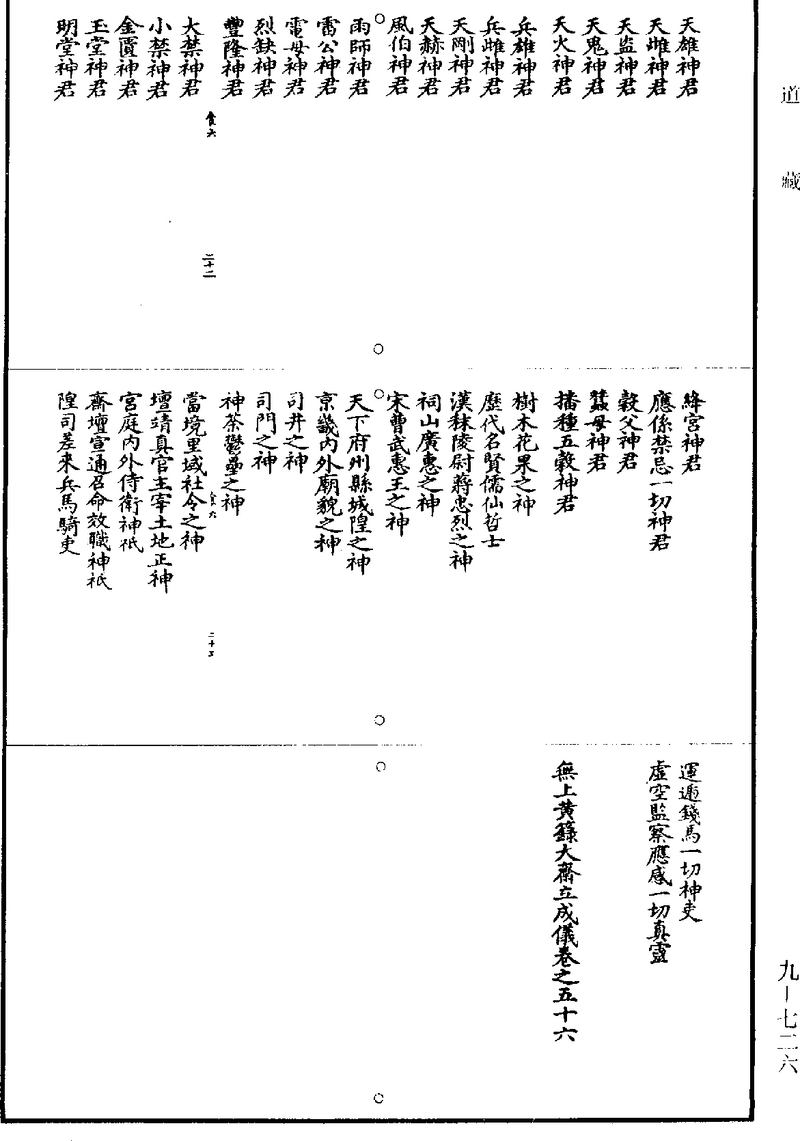 道藏
天雄神君
天雌神君
天盗神君
天鬼神君
天火神君
兵雄神君
兵雌神君
天剛神君
天赫神君
風伯神君
雨師神君
雷公神君
電母神君
烈缺神君
豐隆神君
食六
三十二
大禁神君
小禁神君
金匱神君
玉堂神君
明堂神君
絳宮神君
應係禁忌一切神君
穀父神君
蠶母神君
播種五穀神君
樹木花果之神
歷代名賢儒仙哲士
漢秣陵尉蔣忠烈之神
祠山廣惠之神
宋曹武惠王之神
天下府州縣城隍之神
京畿內外廟貌之神
司井之神
司門之神
神荼鬱壘之神
食六
當境里域社令之神
壇靖真官主宰土地正神
宮庭內外侍衛神祇
齋壇宣通召命效職神祇
隍司差來兵馬騎吏
運遞錢馬一切神吏
虛空監察應感一切真靈
無上黃籙大齋立成儀卷之五十六
九-七二六